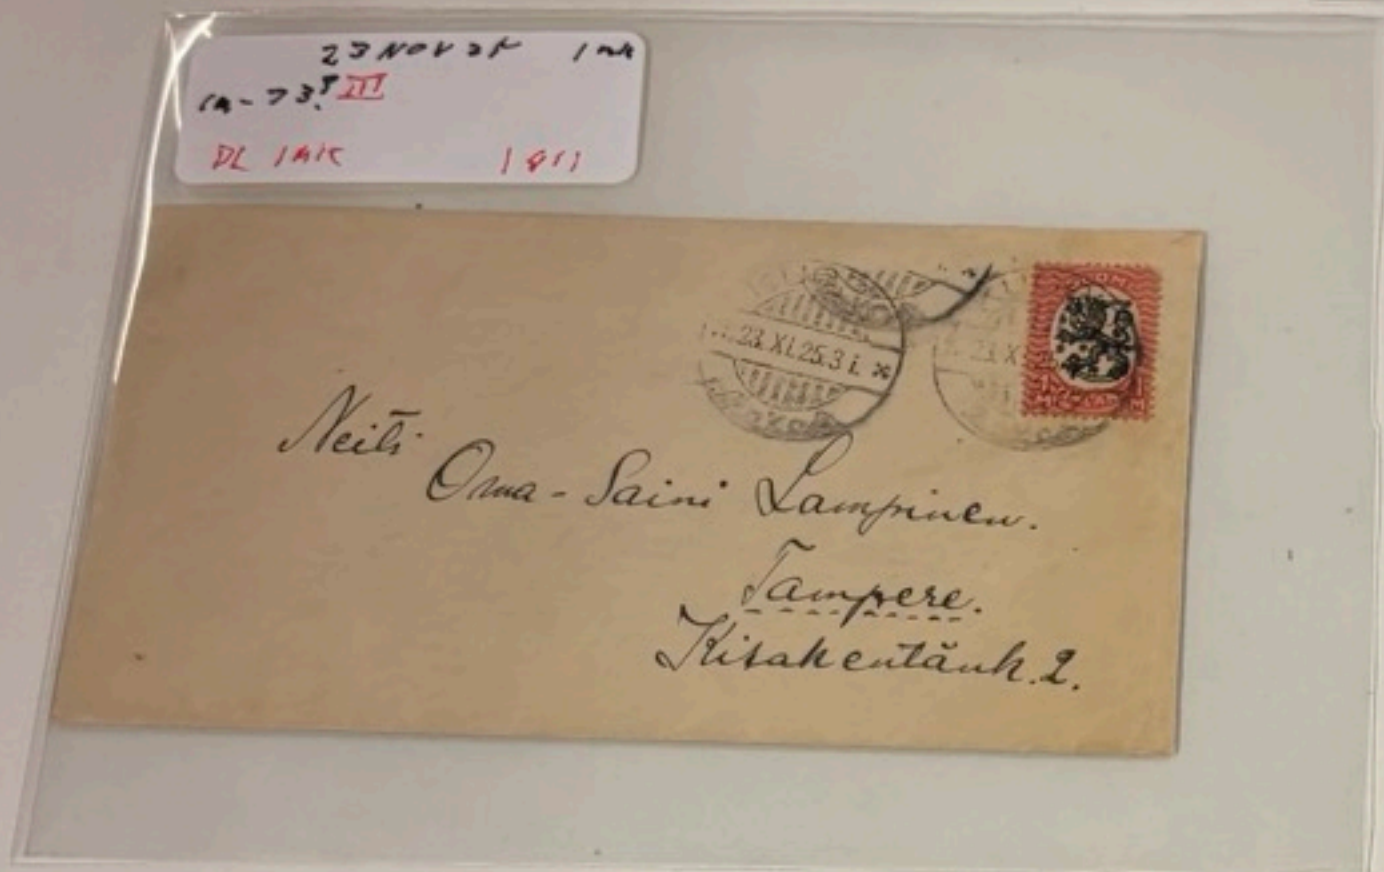 23 NOV 25 1 mk
III
DL 1MK 1811
23.XI.25.3 i. *
23.X
Neiti
Oma-Saini Lampinen.
Tampere.
Kisakentänk. 2.